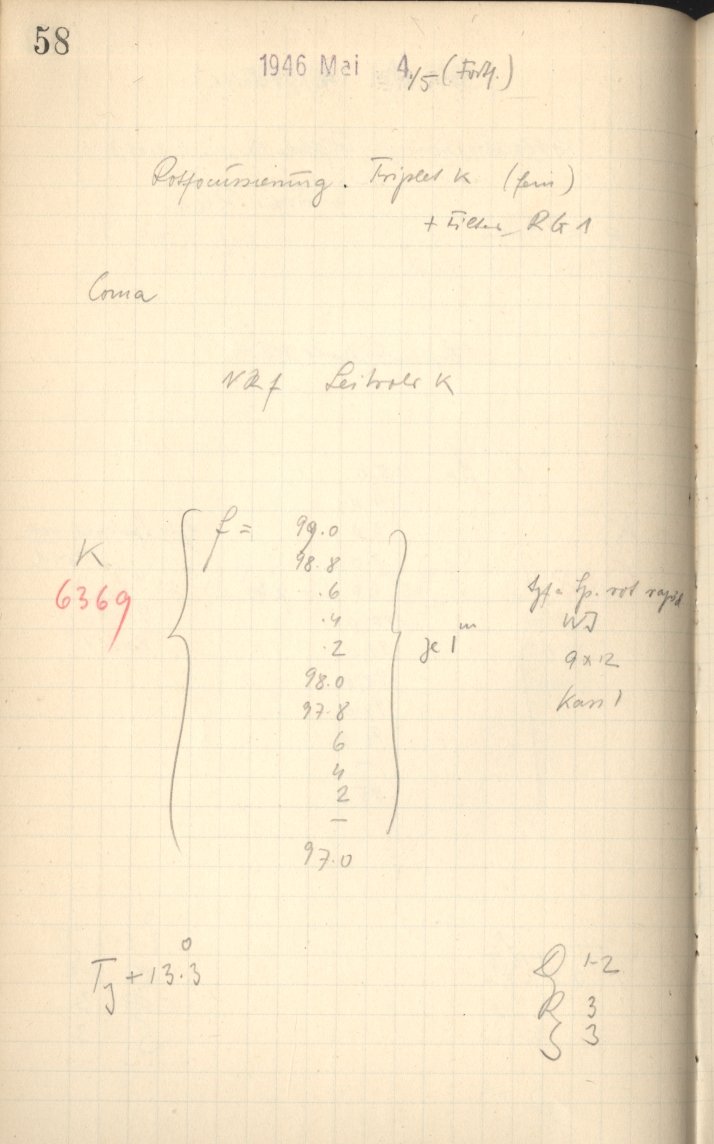 58
1946 Mai 4/5 (Forts.)
Rotfocussierung. Triplet K (fein)
+ Filter RG 1
Coma
Leitrohr K
K
6369
f = 99.0
98.8
.6
.4
.2
98.0
97.8
6
4
2
—
97.0
je 1ᵐ
Agfa Sp. rot rapid
9x12
Kass 1
T_J + 13.3°
1-2
R 3
S 3